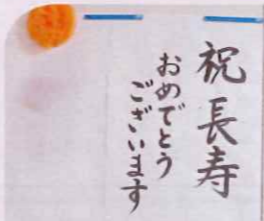 祝長寿
おめでとう
ございます